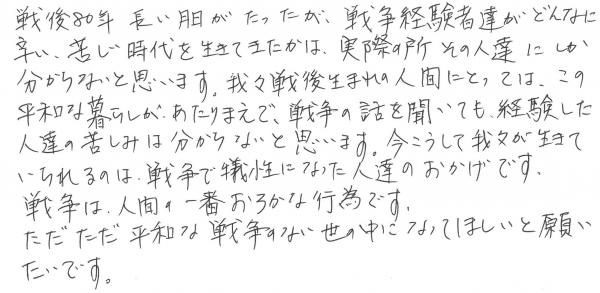 戦後80年 長い月日がたったが、戦争経験者達がどんなに
辛い、苦しい時代を生きてきたかは、実際の所その人達にしか
分からないと思います。我々戦後生まれの人間にとっては、この
平和な暮らしがあたりまえで、戦争の話を聞いても、経験した
人達の苦しみは分からないと思います。今こうして我々が生きて
いられるのは、戦争で犠牲になった人達のおかげです。
戦争は、人間の一番おろかな行為です。
ただただ平和な戦争のない世の中になってほしいと願い
たいです。